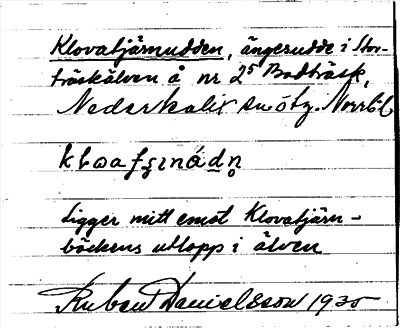 Klovatjärnudden, ängesudde i Stor-
träskälven å nr 25 Bodträsk,
Nederkalix sn ö tg. Norrb.l.
kƚɷafʂınádn̥
Ligger mitt emot Klovatjärn-
bäckens utlopp i älven
Ruben Danielsson 1935